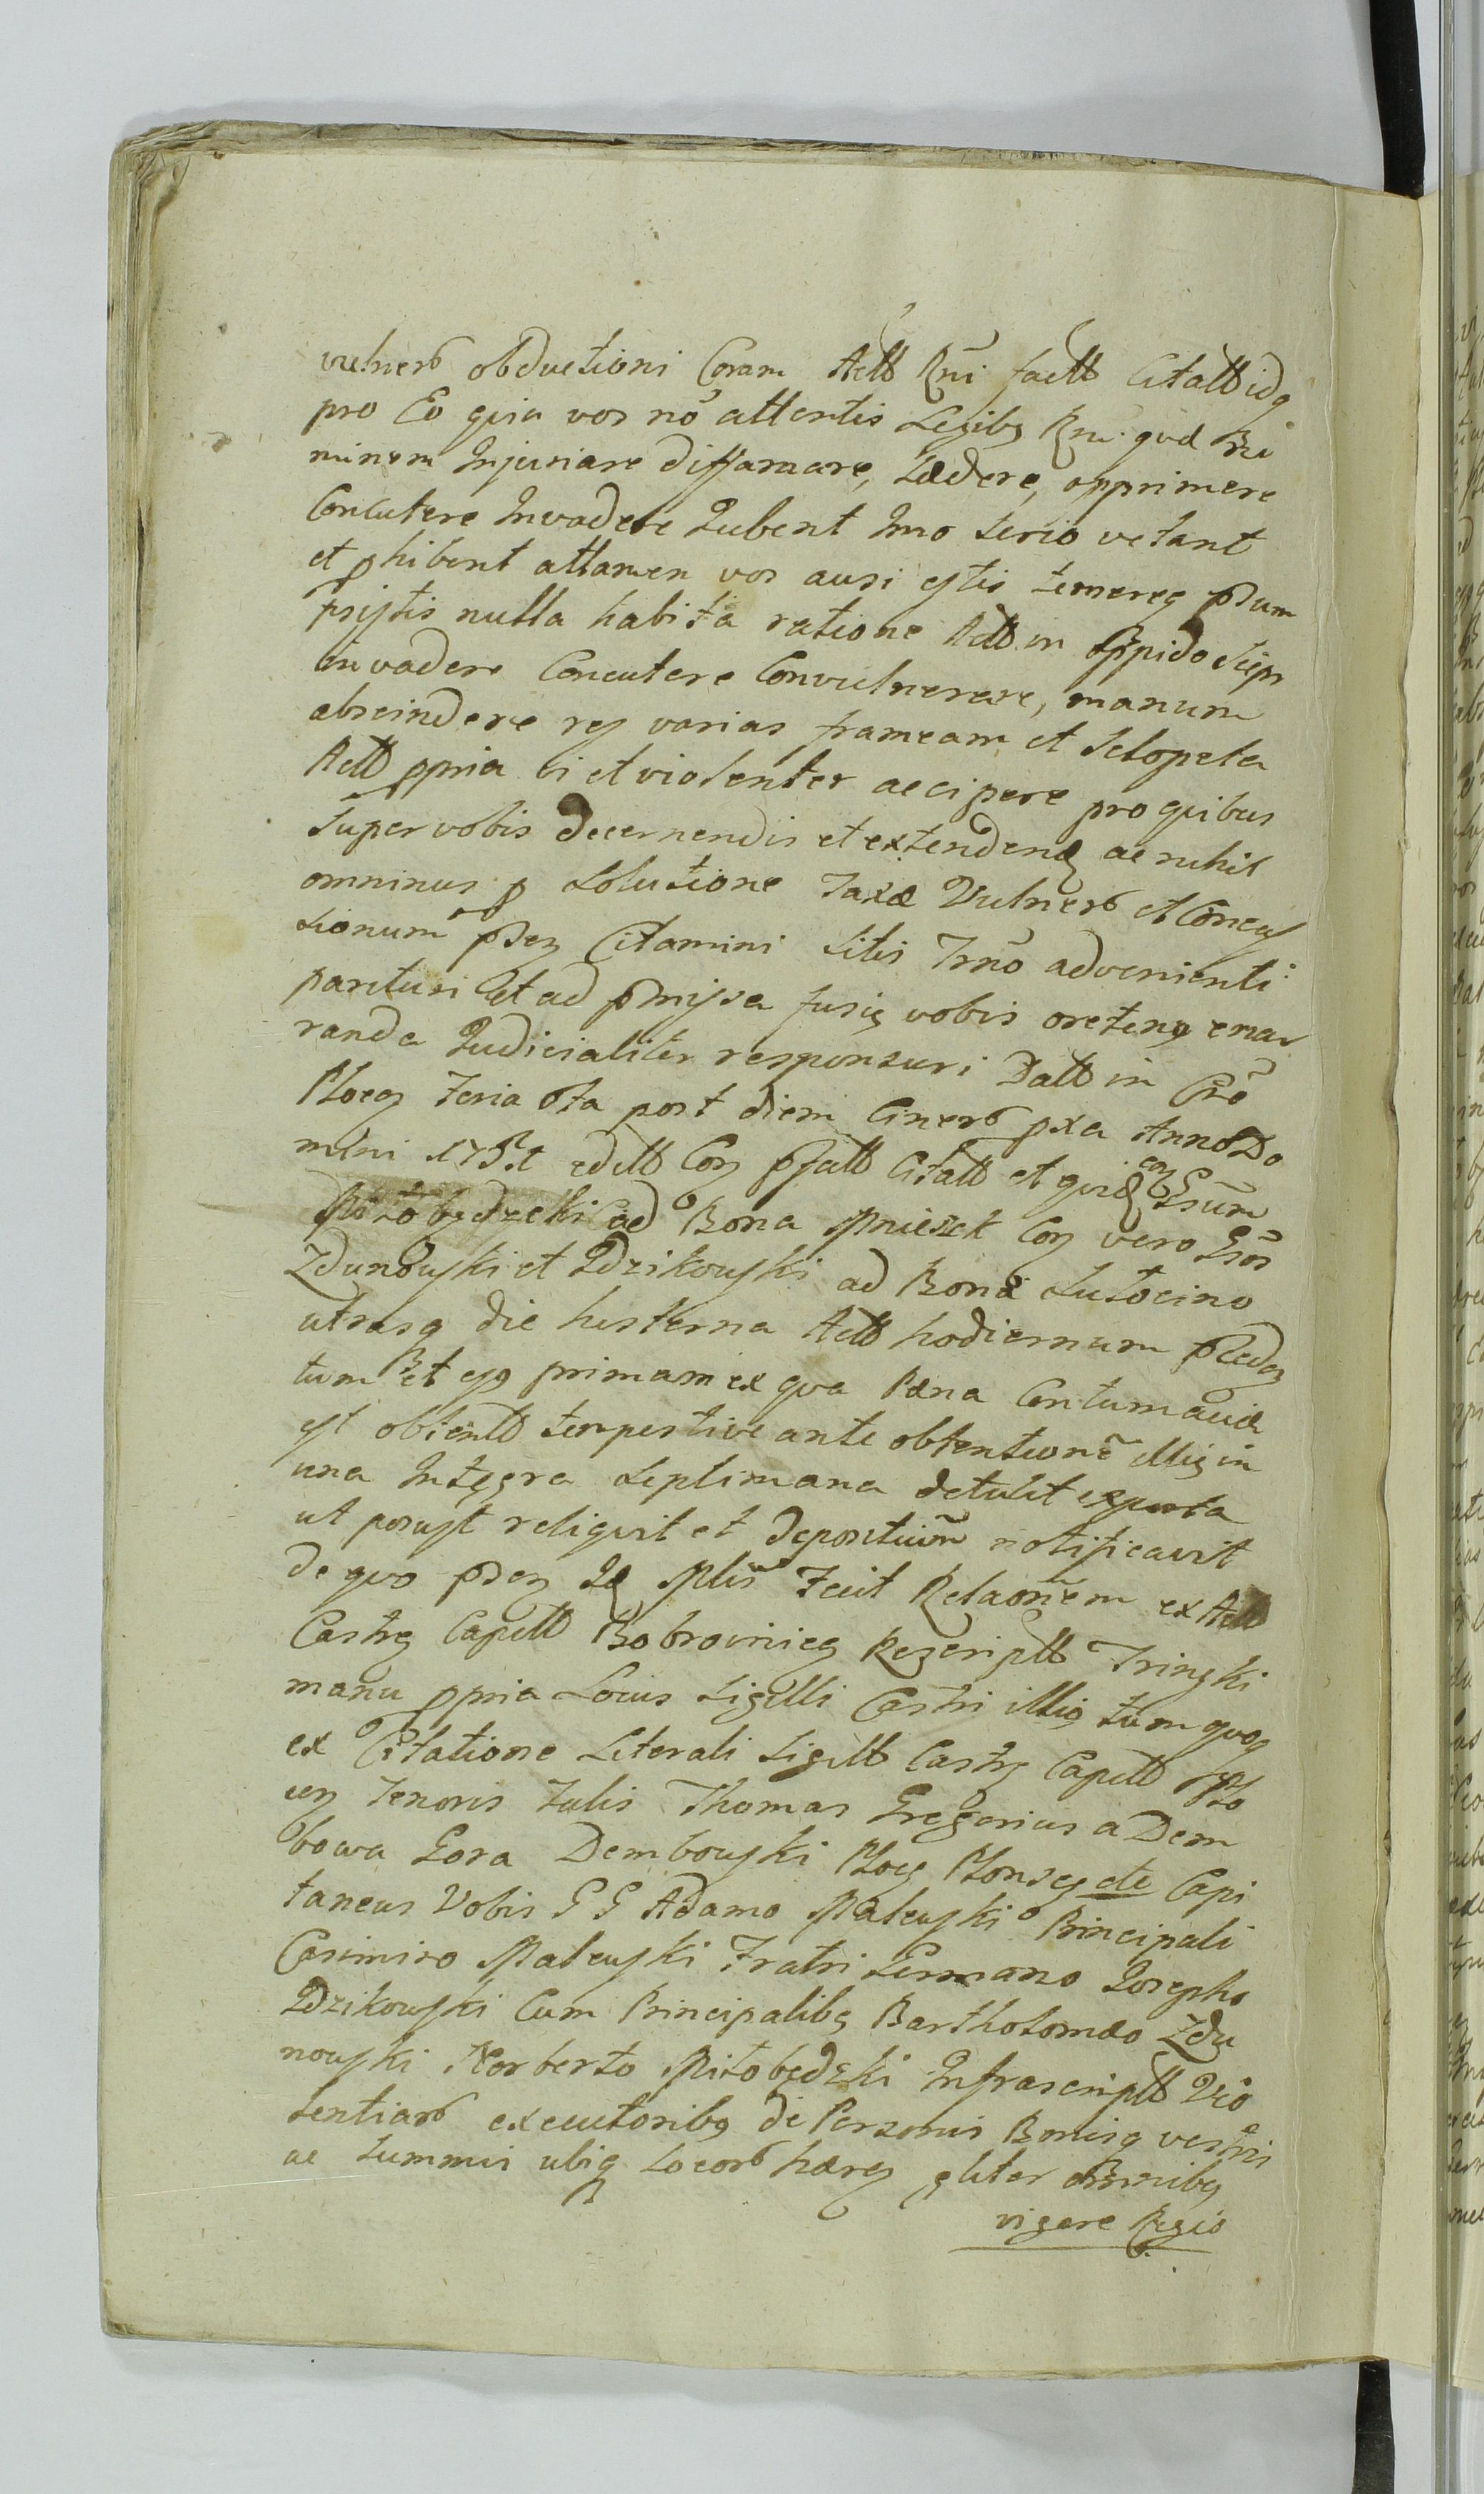 vulnerb obductioni Coram Actb Rñi factb Citatb idq
pro Eo quia vos nõ attentis Legibq Rni quæ Ne
minem Injuriare diffamare, Lædere, opprimere
Concutere Invadere Iubent Imo Serio vetant
et phibent attamen vos ausi estis temereq psum
psistis nulla habita ratione Actb in Oppido Siepr
invadere Concutere Convulnerare, manum
abscindere res varias frameam et Sclopeta
Actb ppria vi et violenter accipere pro quibus
Super vobis decernendis et extendend ac nihil
omninus p Solutione Taxæ Vulnerb et Concus
sionum pdeg Citamini Sitis Trnõ advenienti
parituri et ad pmissa fusiq vobis oretenq enar
randa Iudicialiter responsuri Datb in Cro
Ploceg Feria 6ta post diem Cinerb pxa Anno Do
mini editb Cog Citatb et quid Gsum
Miłobędzcki ad Bona Mniszek Cog vero Gsos
Zdunowski et Idzikowski ad Bona Lutocino
utrasq die hesterna Actb hodiernum pceden
tum et eo primam ex qua Pæna Contumaciæ
est obtentb tempestive ante obtentionẽ illiq in
una Integra Septimana detulit exporta
ut posuit reliquit et depositum notificavit
de quo pdeg Id Mlis Fecit Relaõnem ex Actb
Castrg Capitb Bobrovnieg Rescriptb Trinski
manu ppria Locus Sigilli Castri illiq tum quoq
ex Citatione Literali Sigillb Castrg Capitb Plo
ceg Tenoris Talis Thomas Gregorius a Dem
bowa Gora Dembowski Ploceg Plonseg etc Capi
taneus Vobis G G Adamo Malewski Principali
Casimiro Malewski Fratri Germano Iosepho
Idzikowski Cum Principalibq Bartholomæo Zdu
nowski Norberto Miłobędzki Infrascriptb Vio
lentiarb executoribq de Personis Bonisq vestris
ac Summis ubiq Locorb hæreg gliter Omnibq
vigore Regio